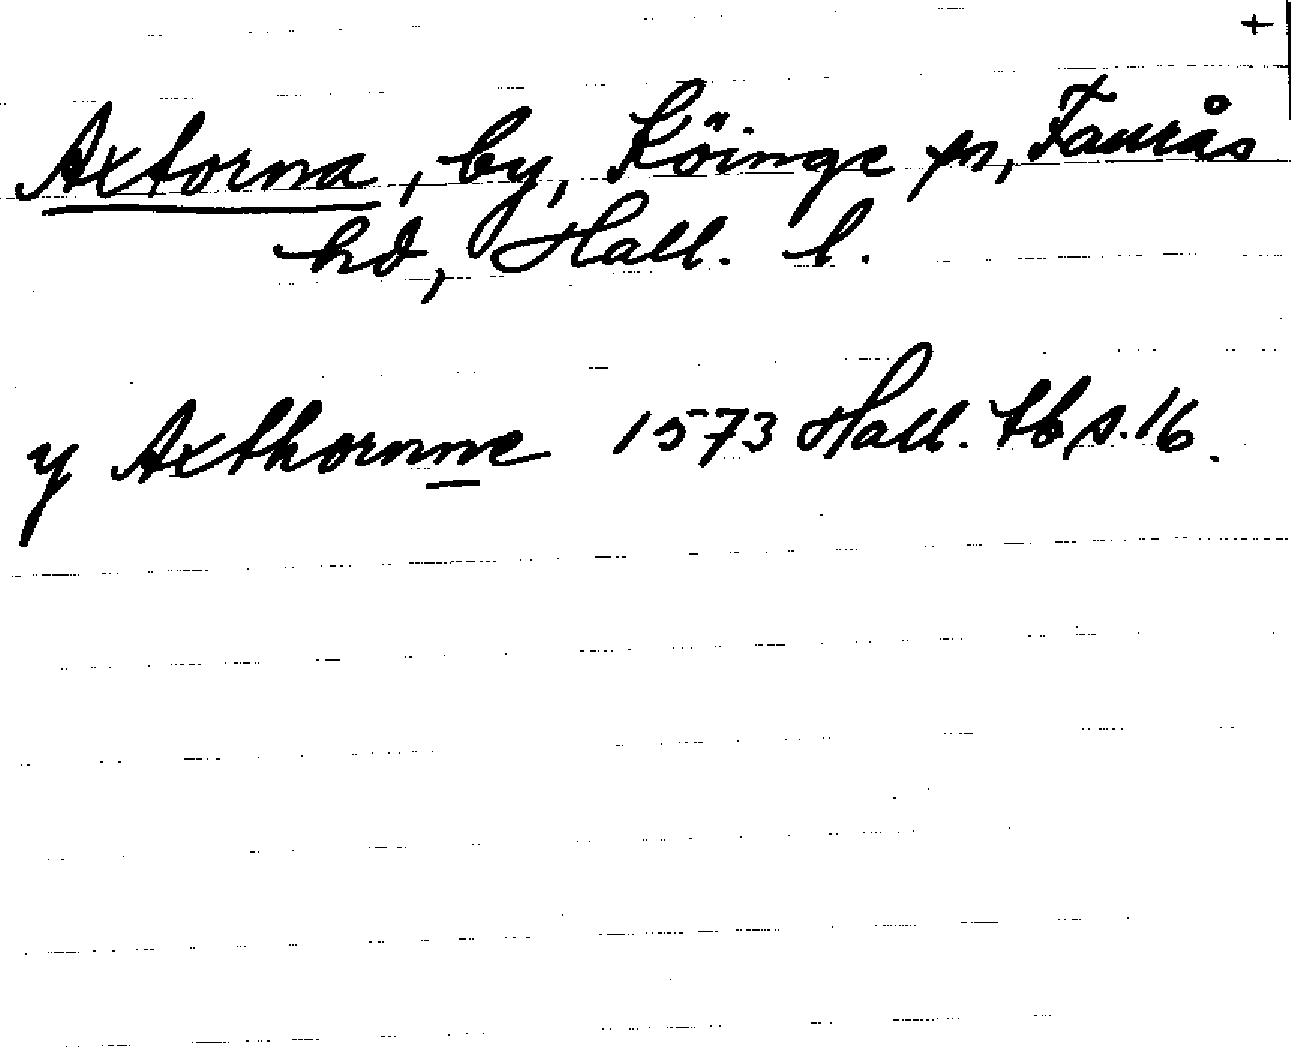 +
Axtorna, by, Köinge sn, Faurås
hd, Hall. l.
y Axthornne 1573 Hall. tb s. 16.